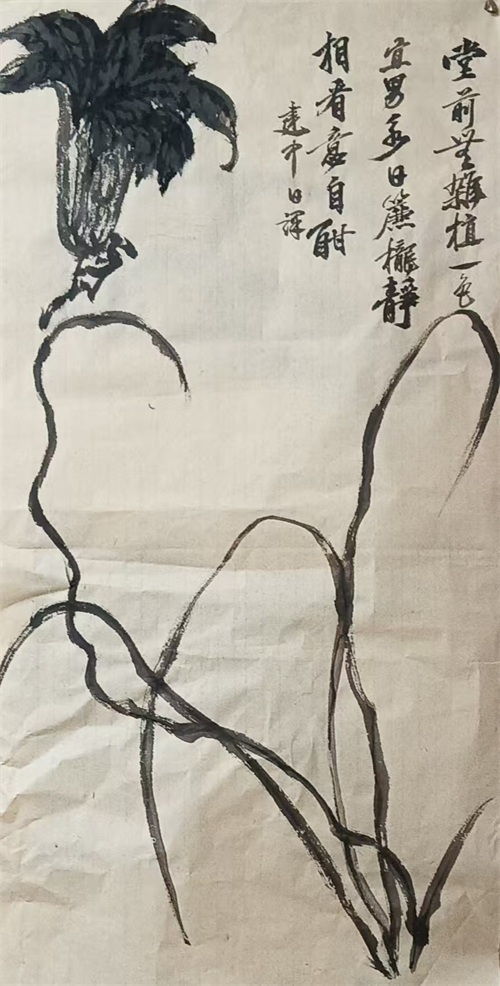 堂前無雜植一色
宜男永日簾櫳靜
相看意自酣
建中日